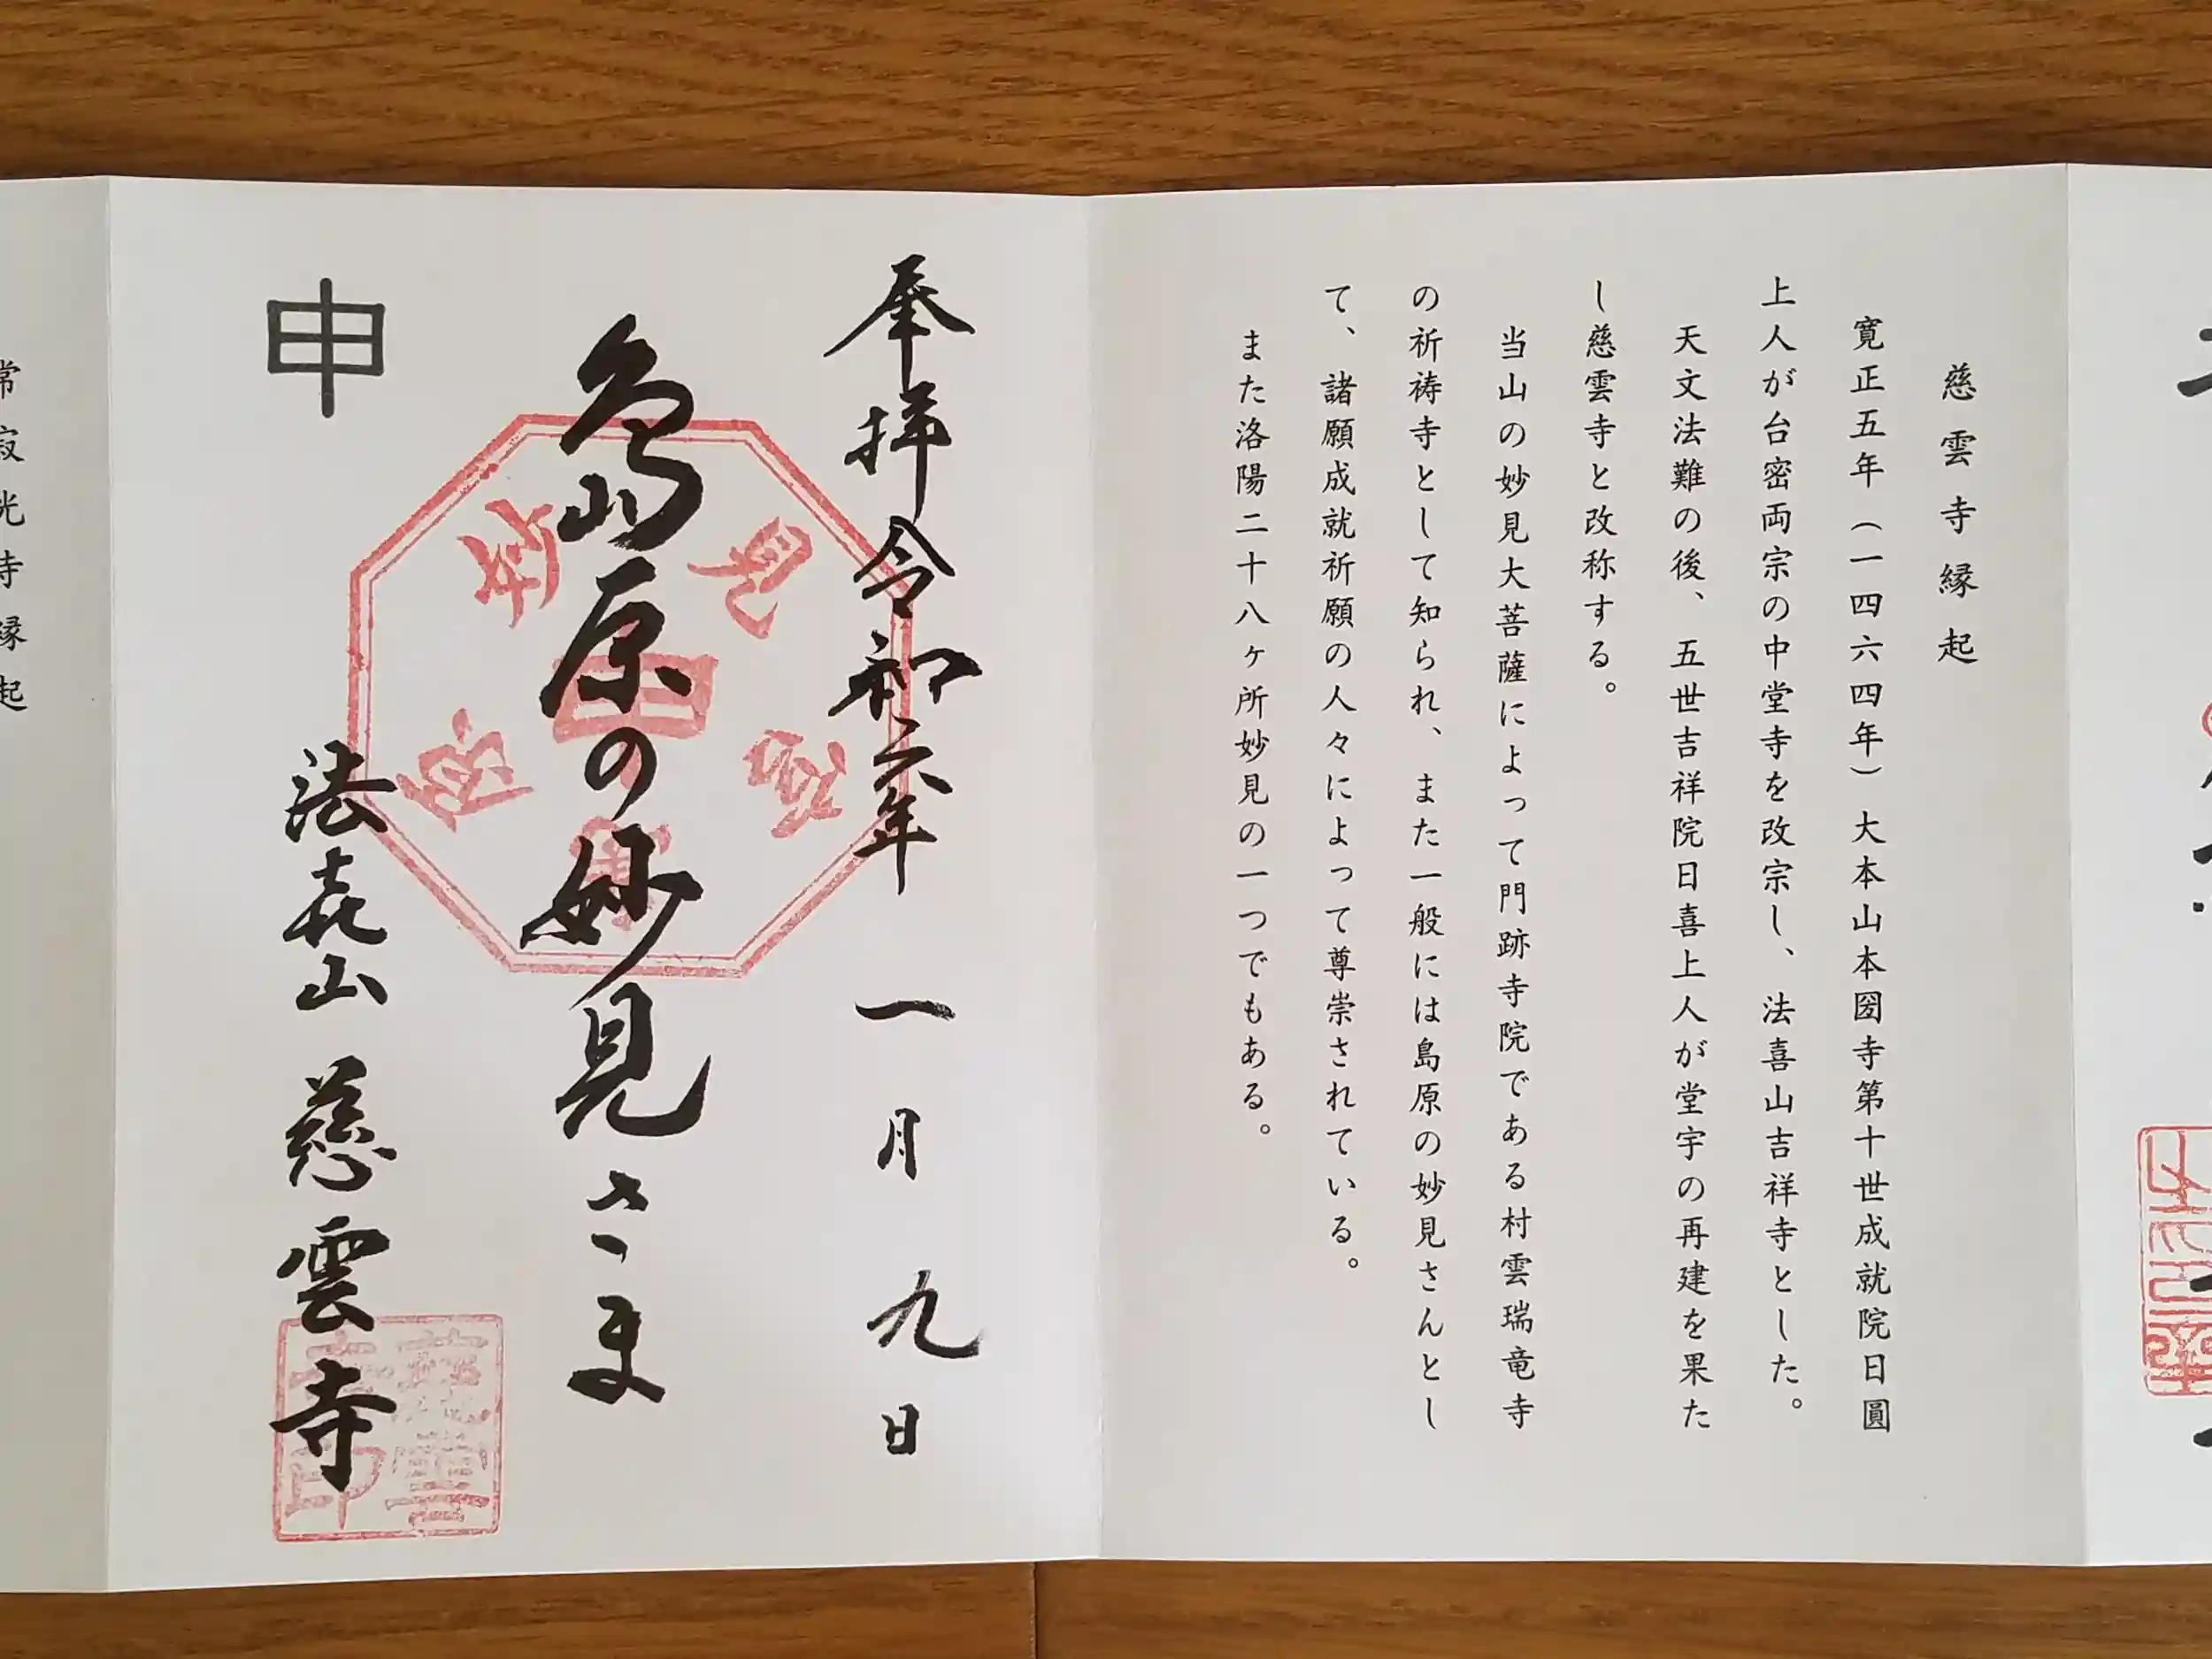 慈雲寺縁起
寛正五年（一四六四年）大本山本圀寺第十世成就院日圓
上人が台密両宗の中堂寺を改宗し、法喜山吉祥寺とした。
天文法難の後、五世吉祥院日喜上人が堂宇の再建を果た
し慈雲寺と改称する。
当山の妙見大菩薩によって門跡寺院である村雲瑞竜寺
の祈祷寺として知られ、また一般には島原の妙見さんとし
て、諸願成就祈願の人々によって尊崇されている。
また洛陽二十八ヶ所妙見の一つでもある。
奉拝令和六年一月九日
島原の妙見さま
申
法㐂山慈雲寺
慈雲
寺印
常寂光寺縁起